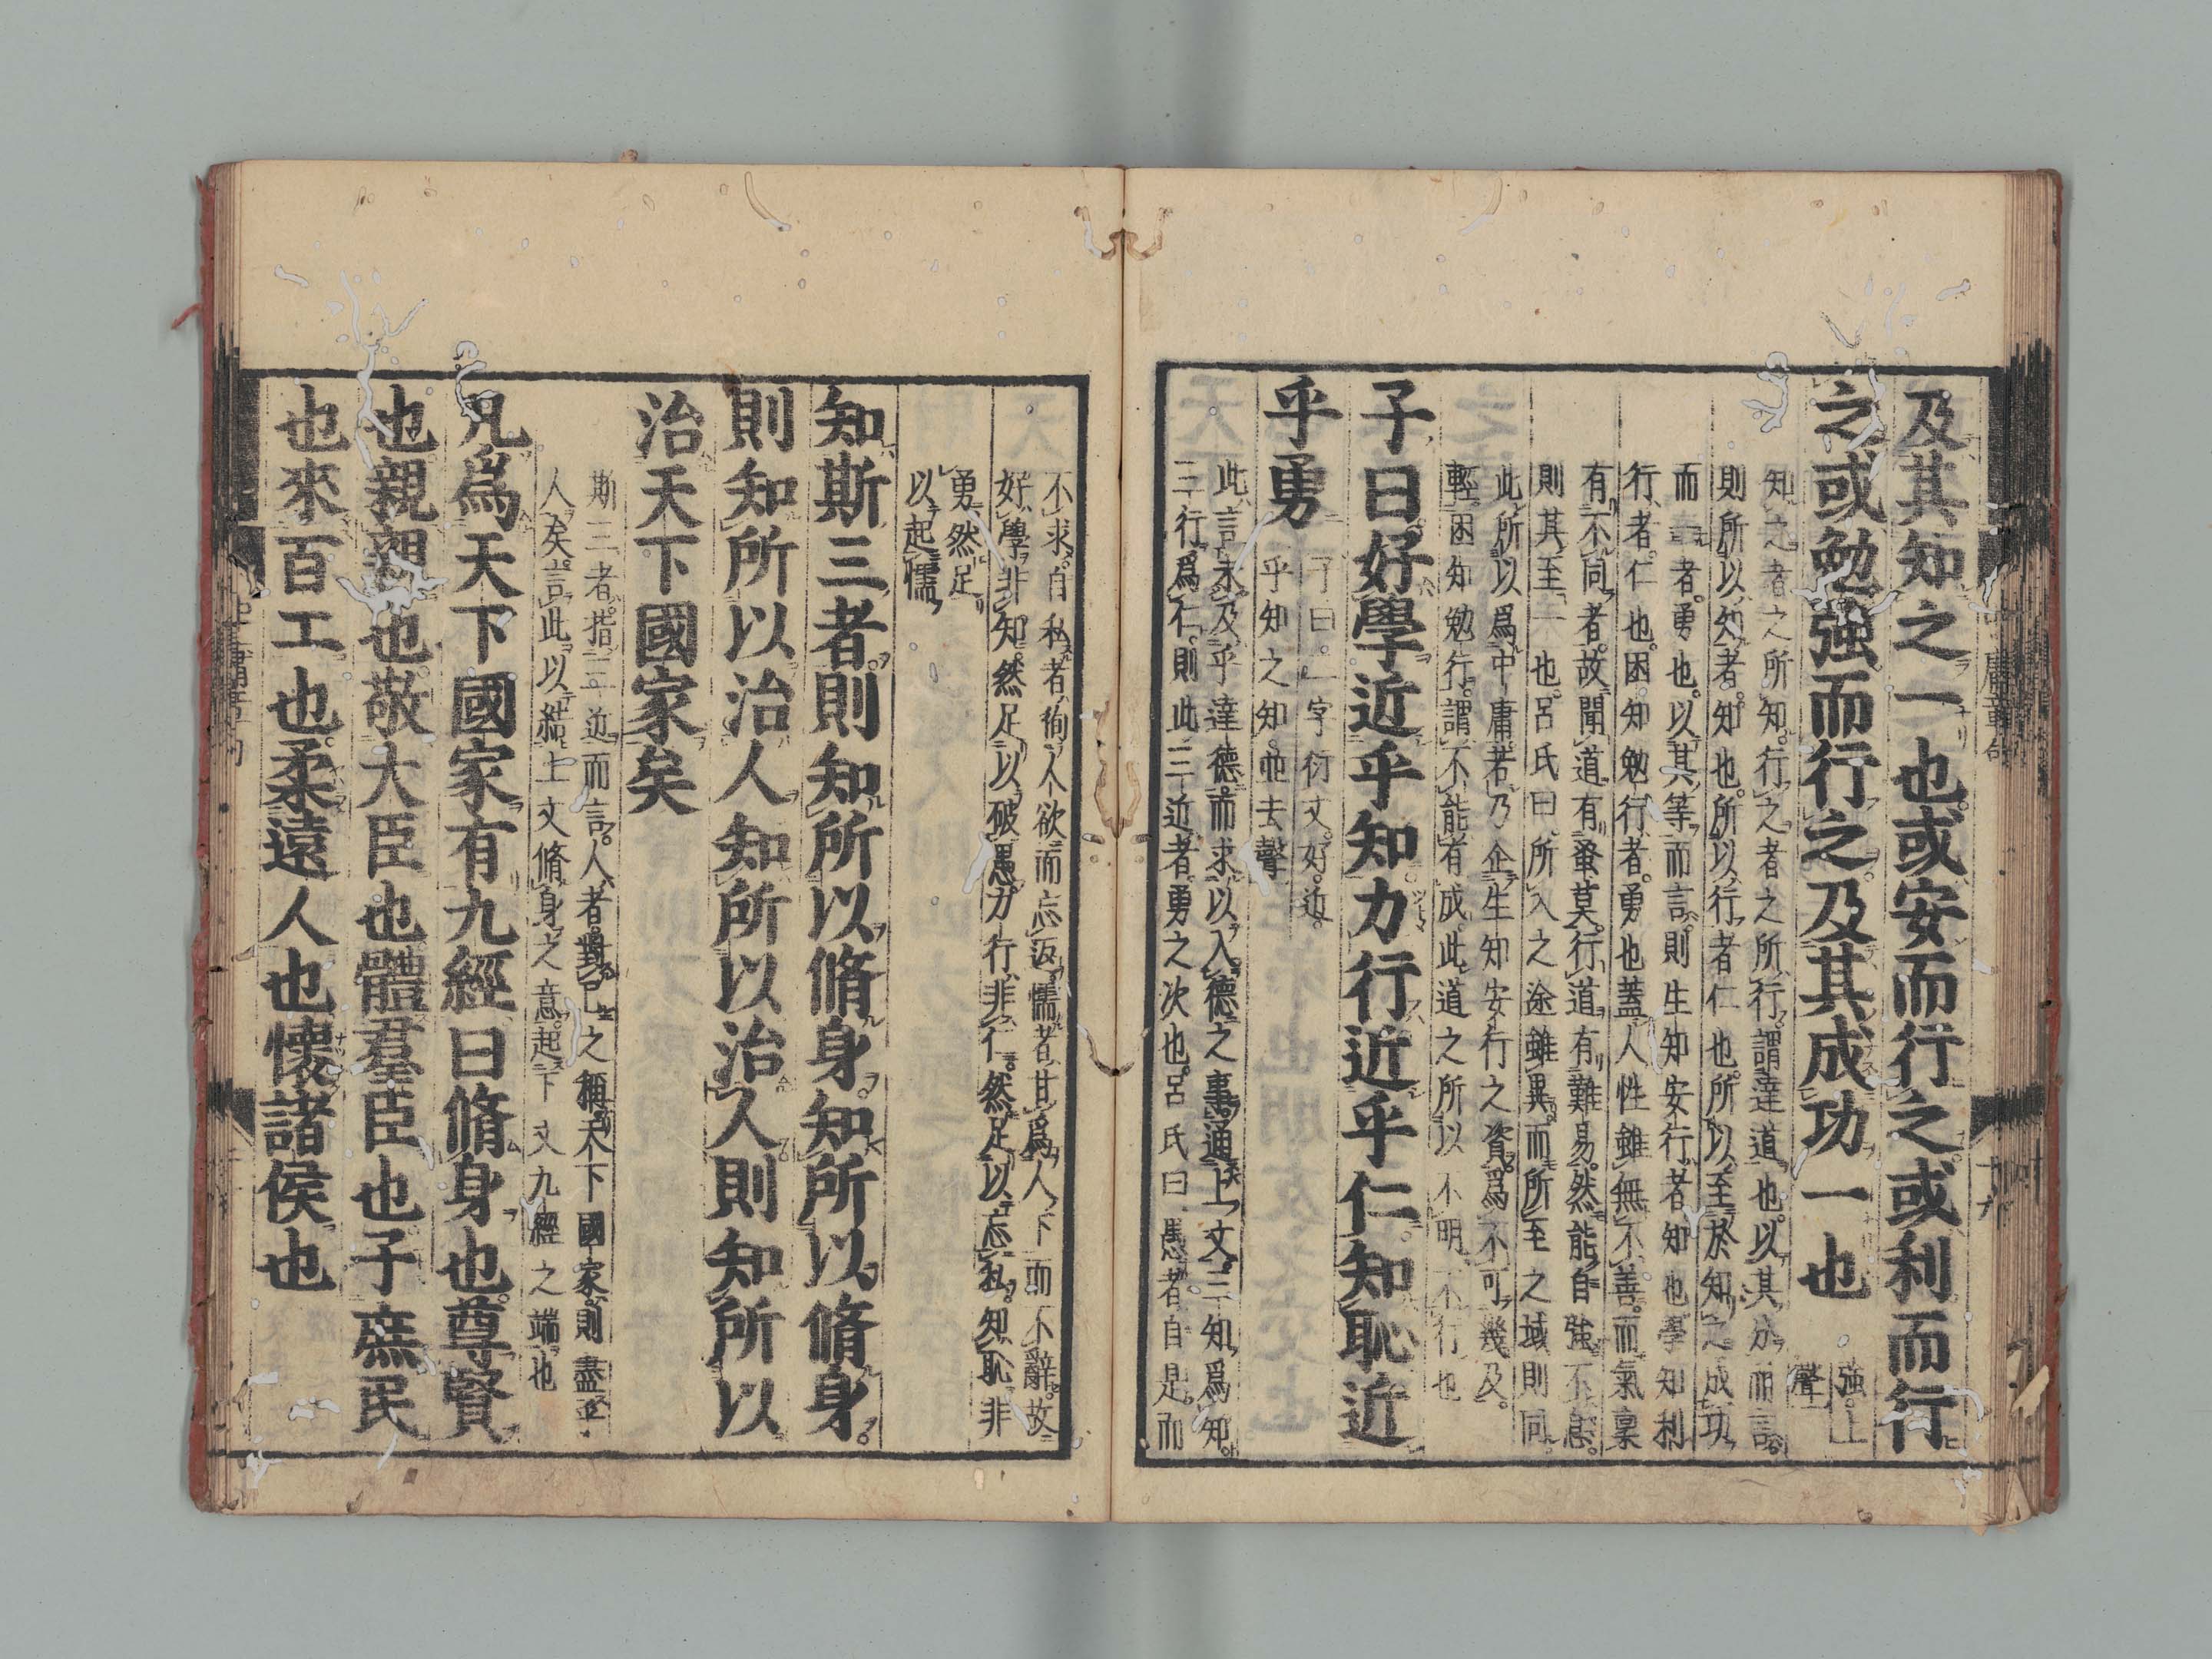 及其知之一也或安而行之或利而行
之或勉強而行之及其成功一也
強上
聲
知之者之所知行之者之所行謂達道也以其分而言
則所以知者知也所以行者仁也所以至於知之成功
而一者勇也以其等而言則生知安行者知也學知利
行者仁也困知勉行者勇也蓋人性雖無不善而氣稟
有不同者故聞道有蚤莫行道有難易然能自強不息
則其至一也呂氏曰所入之途雖異而所至之域則同
此所以爲中庸若乃企生知安行之資爲不可幾及
輕困知勉行謂不能有成此道之所以不明不行也
子曰好學近乎知力行近乎仁知恥近
乎勇
子曰二字衍文好近
乎知之知並去聲
此言未及乎達德而求以入德之事通上文三知爲知
三行爲仁則此三近者勇之次也呂氏曰愚者自是而
不求自私者徇人欲而忘返懦者甘爲人下而不辭故
好學非知然足以破愚力行非仁然足以忘私知恥非
勇然足
以起懦
知斯三者則知所以脩身知所以脩身
則知所以治人知所以治人則知所以
治天下國家矣
斯三者指三近而言人者對己之稱天下國家則盡乎
人矣言此以結上文脩身之意起下文九經之端也
凡爲天下國家有九經曰脩身也尊賢
也親親也敬大臣也體羣臣也子庶民
也來百工也柔遠人也懷諸侯也